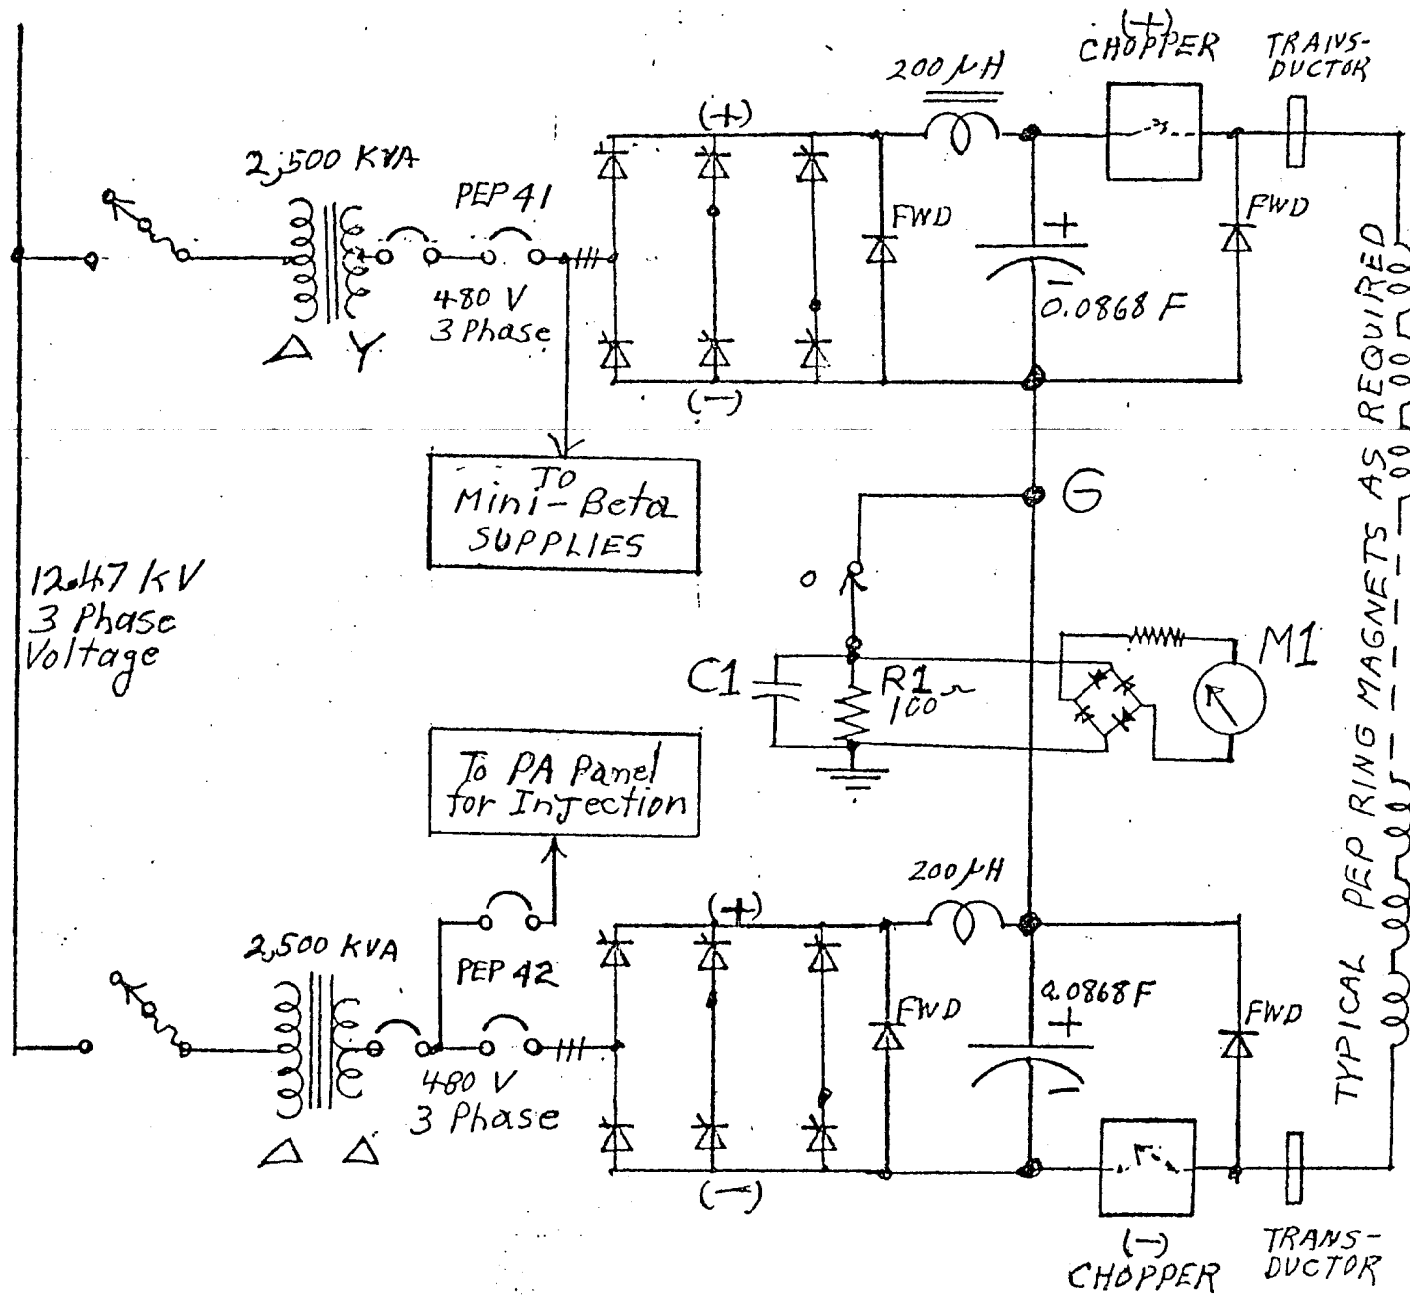 (+)
CHOPPER
TRANS-
DUCTOR
200 μH
(+)
2,500 KVA
PEP 41
FWD
FWD
+
480 V
3 Phase
−
0.0868 F
Δ Y
(−)
TO
Mini-Beta
SUPPLIES
G
12.47 kV
3 Phase
Voltage
O
M1
C1
R1
100 Ω
To PA Panel
for Injection
TYPICAL PEP RING MAGNETS AS REQUIRED
200 μH
(+)
2,500 KVA
PEP 42
0.0868 F
FWD
+
FWD
480 V
3 Phase
−
Δ Δ
(−)
(−)
CHOPPER
TRANS-
DUCTOR